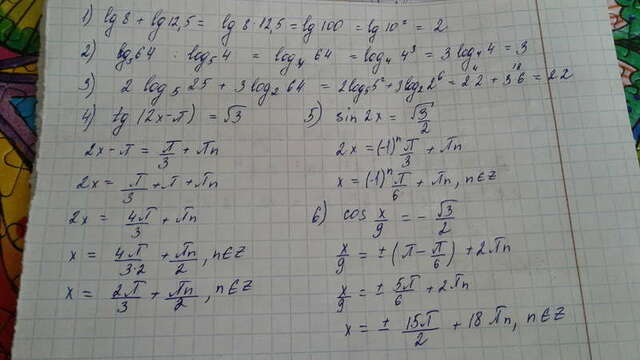 1) lg 8 + lg 12,5 = lg 8·12,5 = lg 100 = lg 10² = 2
2) log₅64 : log₅4 = log₄ 64 = log₄ 4³ = 3 log₄ 4 = 3
3) 2 log₅ 25 + 3 log₂ 64 = 2log₅5² + 3log₂2⁶ = 2·2 + 3·6 = 22
4) tg (2x-π) = √3
2x-π = π/3 + πn
2x = π/3 + π + πn
2x = 4π/3 + πn
x = 4π/3·2 + πn/2, n∈Z
x = 2π/3 + πn/2, n∈Z
5) sin 2x = √3/2
2x = (-1)ⁿ π/3 + πn
x = (-1)ⁿ π/6 + πn, n∈Z
6) cos x/9 = - √3/2
x/9 = ± (π - π/6) + 2πn
x/9 = ± 5π/6 + 2πn
x = ± 15π/2 + 18 πn, n∈Z